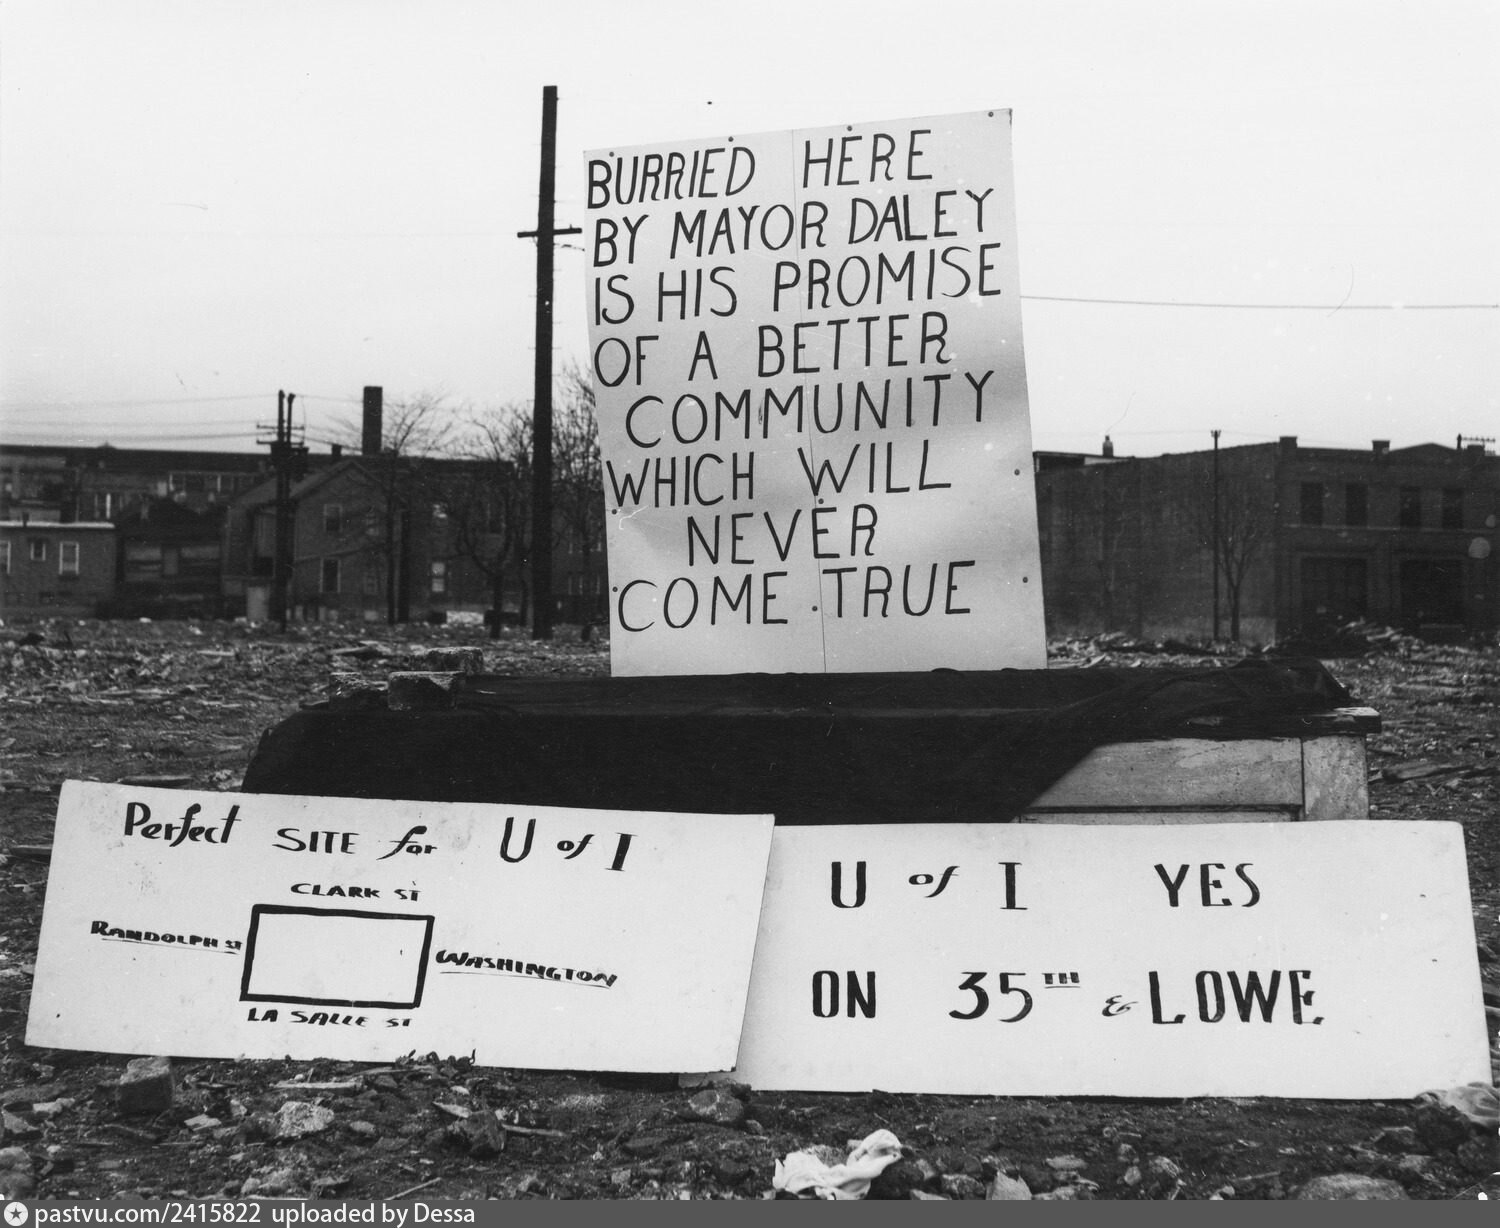 BURRIED HERE
BY MAYOR DALEY
IS HIS PROMISE
OF A BETTER
COMMUNITY
WHICH WILL
NEVER
COME TRUE
Perfect SITE for U of I
CLARK ST
RANDOLPH ST
WASHINGTON
LA SALLE ST
U of I YES
ON 35TH & LOWE
pastvu.com/2415822 uploaded by Dessa